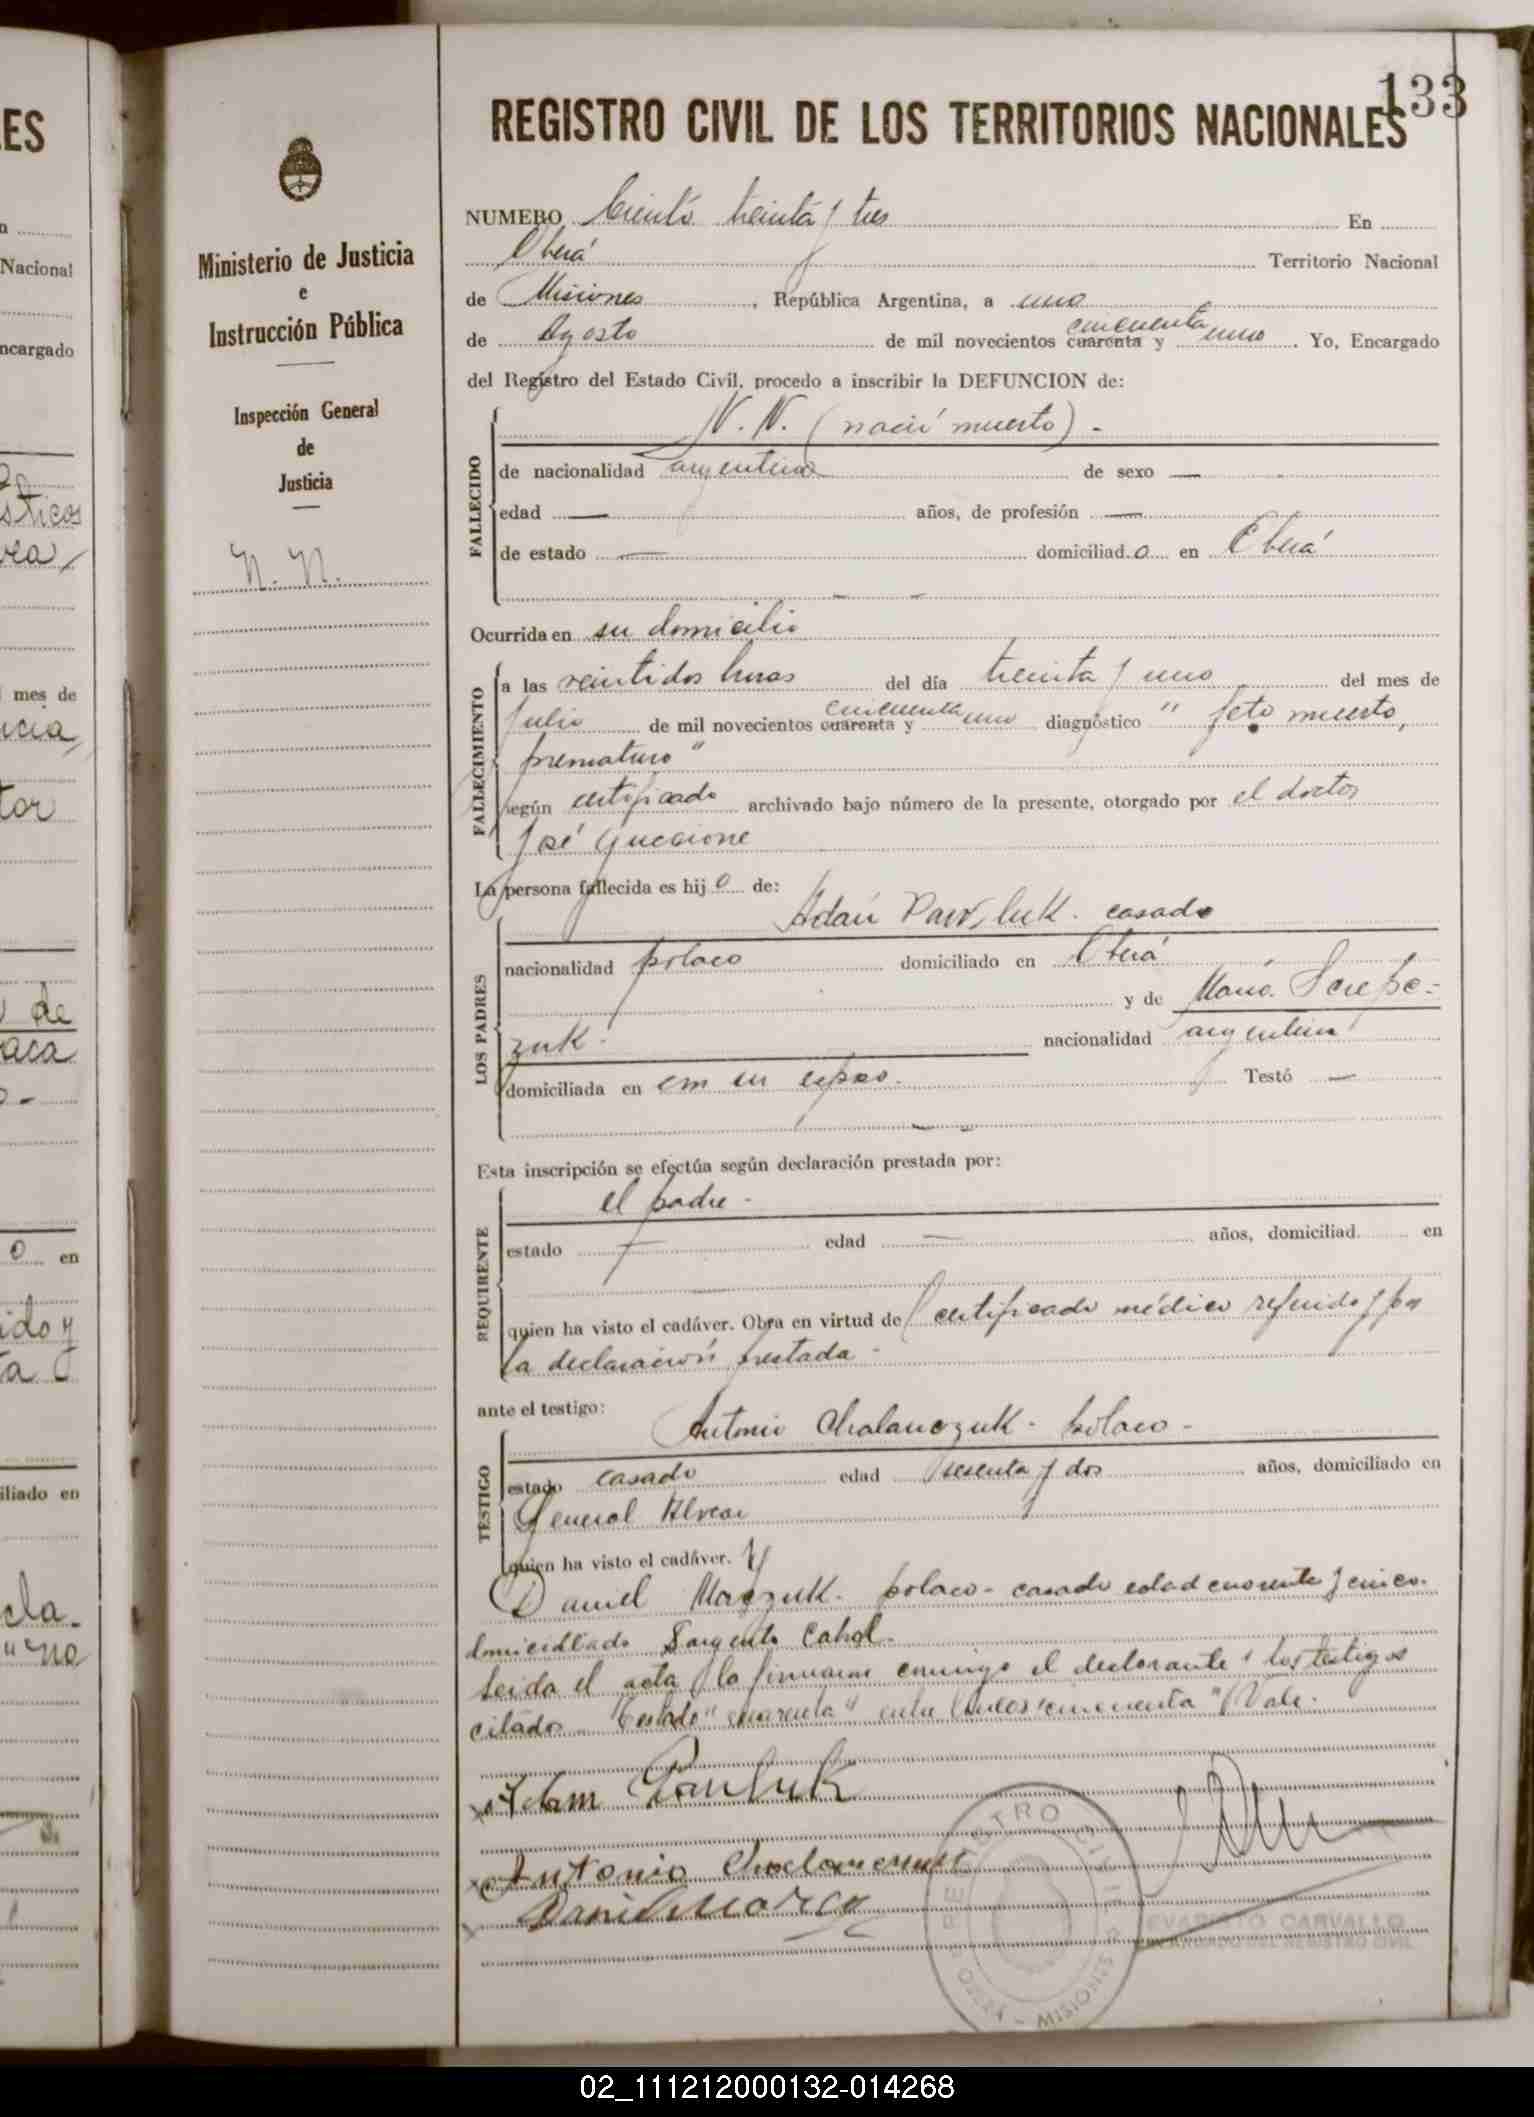 133
REGISTRO CIVIL DE LOS TERRITORIOS NACIONALES
Ministerio de Justicia
e
Instrucción Pública
Inspección General
de
Justicia
N. N.
NUMERO Ciento treinta y tres En
Oberá Territorio Nacional
de Misiones, República Argentina, a uno
de Agosto de mil novecientos cuarenta y cincuenta uno. Yo, Encargado
del Registro del Estado Civil, procedo a inscribir la DEFUNCION de:
FALLECIDO
N. N. (nació muerto).-
de nacionalidad argentina de sexo —
edad — años, de profesión —
de estado — domiciliado en Oberá
Ocurrida en su domicilio
FALLECIMIENTO
a las veintidos horas del día treinta y uno del mes de
Julio de mil novecientos cuarenta y cincuenta uno diagnóstico "feto muerto,
prematuro"
según certificado archivado bajo número de la presente, otorgado por el doctor
José Guccione
La persona fallecida es hijo de:
LOS PADRES
Adán Pawluk. casado
nacionalidad polaco domiciliado en Oberá
y de María Screpc-
zuk. nacionalidad argentina
domiciliada en con su esposo. Testó —
Esta inscripción se efectúa según declaración prestada por:
REQUIRENTE
el padre -
estado — edad — años, domiciliad en
quien ha visto el cadáver. Obra en virtud de certificado médico referido y por
la declaración prestada -
ante el testigo:
TESTIGO
Antonio Chalanczuk - polaco -
estado casado edad sesenta y dos años, domiciliado en
General Alvear
quien ha visto el cadáver. y
Daniel Marczuk. polaco - casado edad cuarenta y cinco.
domiciliado Sargento Cabral.
Leida el acta la firmaron conmigo el declarante y los testigos
citados. Testado "cuarenta" entre lineas "cincuenta" Vale.
Adam Pawluk
Antonio
REGISTRO CIVIL
OBERA - MISIONES
EVARISTO CARVALLO
ENCARGADO DEL REGISTRO CIVIL
ES
Nacional
ncargado
mes de
tor
de
en
iliado en
02_111212000132-014268